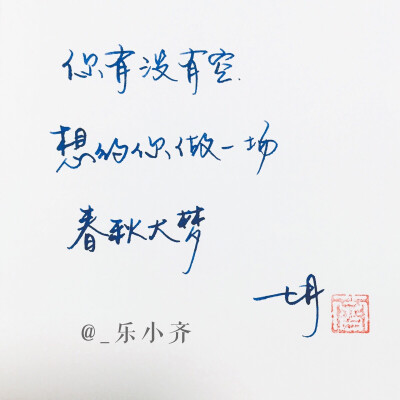 你有没有空.
想约你做一场
春秋大梦
七月
@_乐小齐